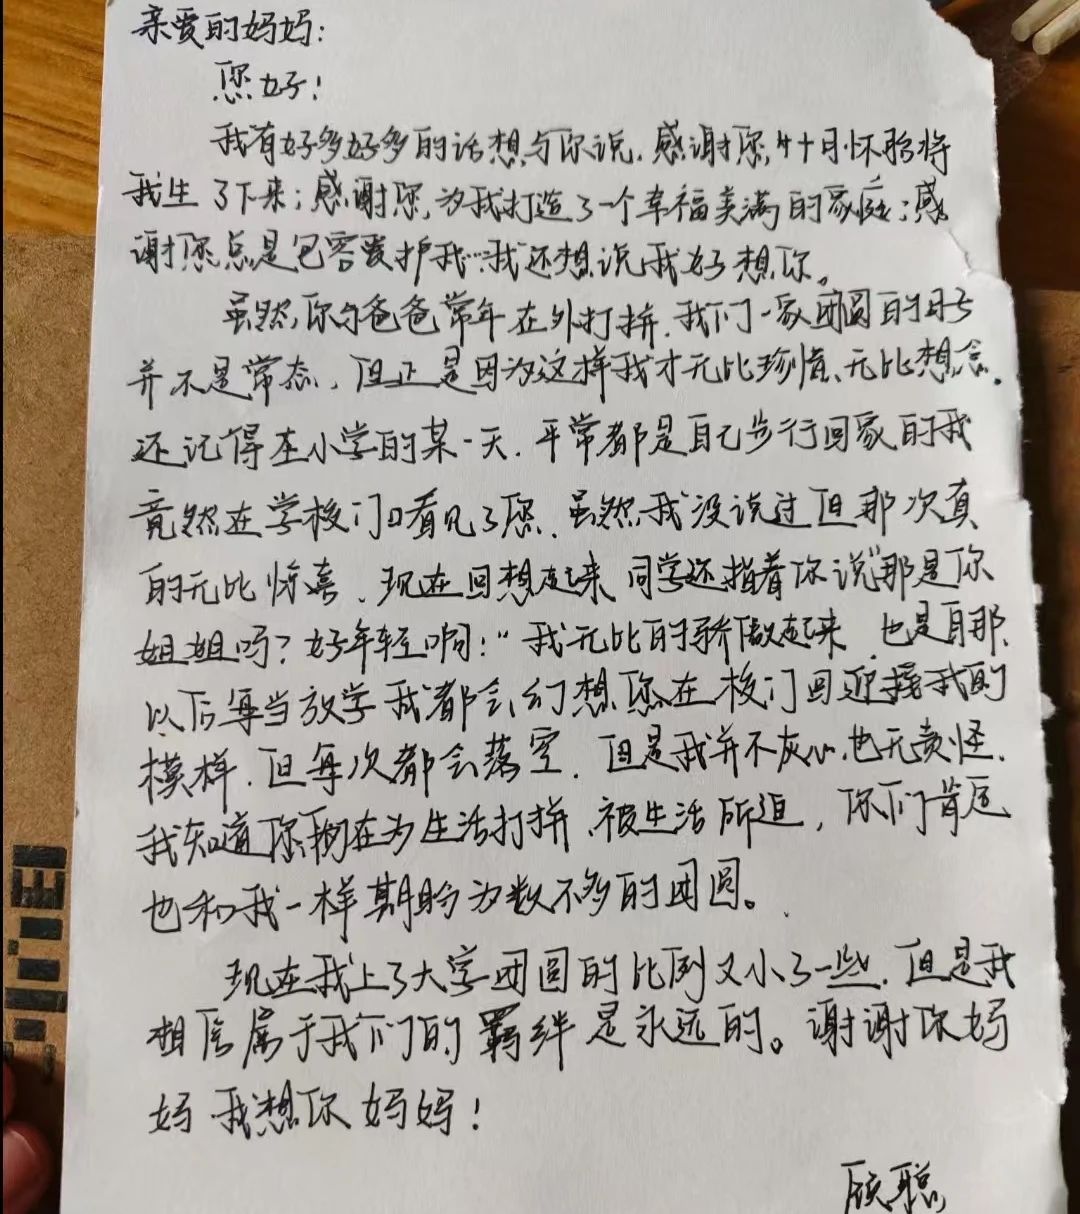 亲爱的妈妈:
您好!
我有好多好多的话想与你说.感谢您,十月怀胎将
我生了下来;感谢您,为我打造了一个幸福美满的家庭;感
谢您总是包容爱护我…我还想说我好想你。
虽然,你与爸爸常年在外打拼.我们一家团圆的日子
并不是常态,但正是因为这样我才无比珍惜、无比想念.
还记得在小学的某一天.平常都是自己步行回家的我
竟然在学校门口看见了您.虽然我没说过但那次真
的无比惊喜.现在回想起来同学还指着你说"那是你
姐姐吗?好年轻啊:"我无比的骄傲起来.也是自那
以后每当放学我都会幻想您在校门口迎接我的
模样.但每次都会落空.但是我并不灰心.也无责怪.
我知道你们在为生活打拼.被生活所迫,你们肯定
也和我一样期盼为数不多的团圆。
现在我上了大学团圆的比例又小了一些.但是我
相信属于我们的羁绊是永远的。谢谢你妈
妈.我想你妈妈!
聪